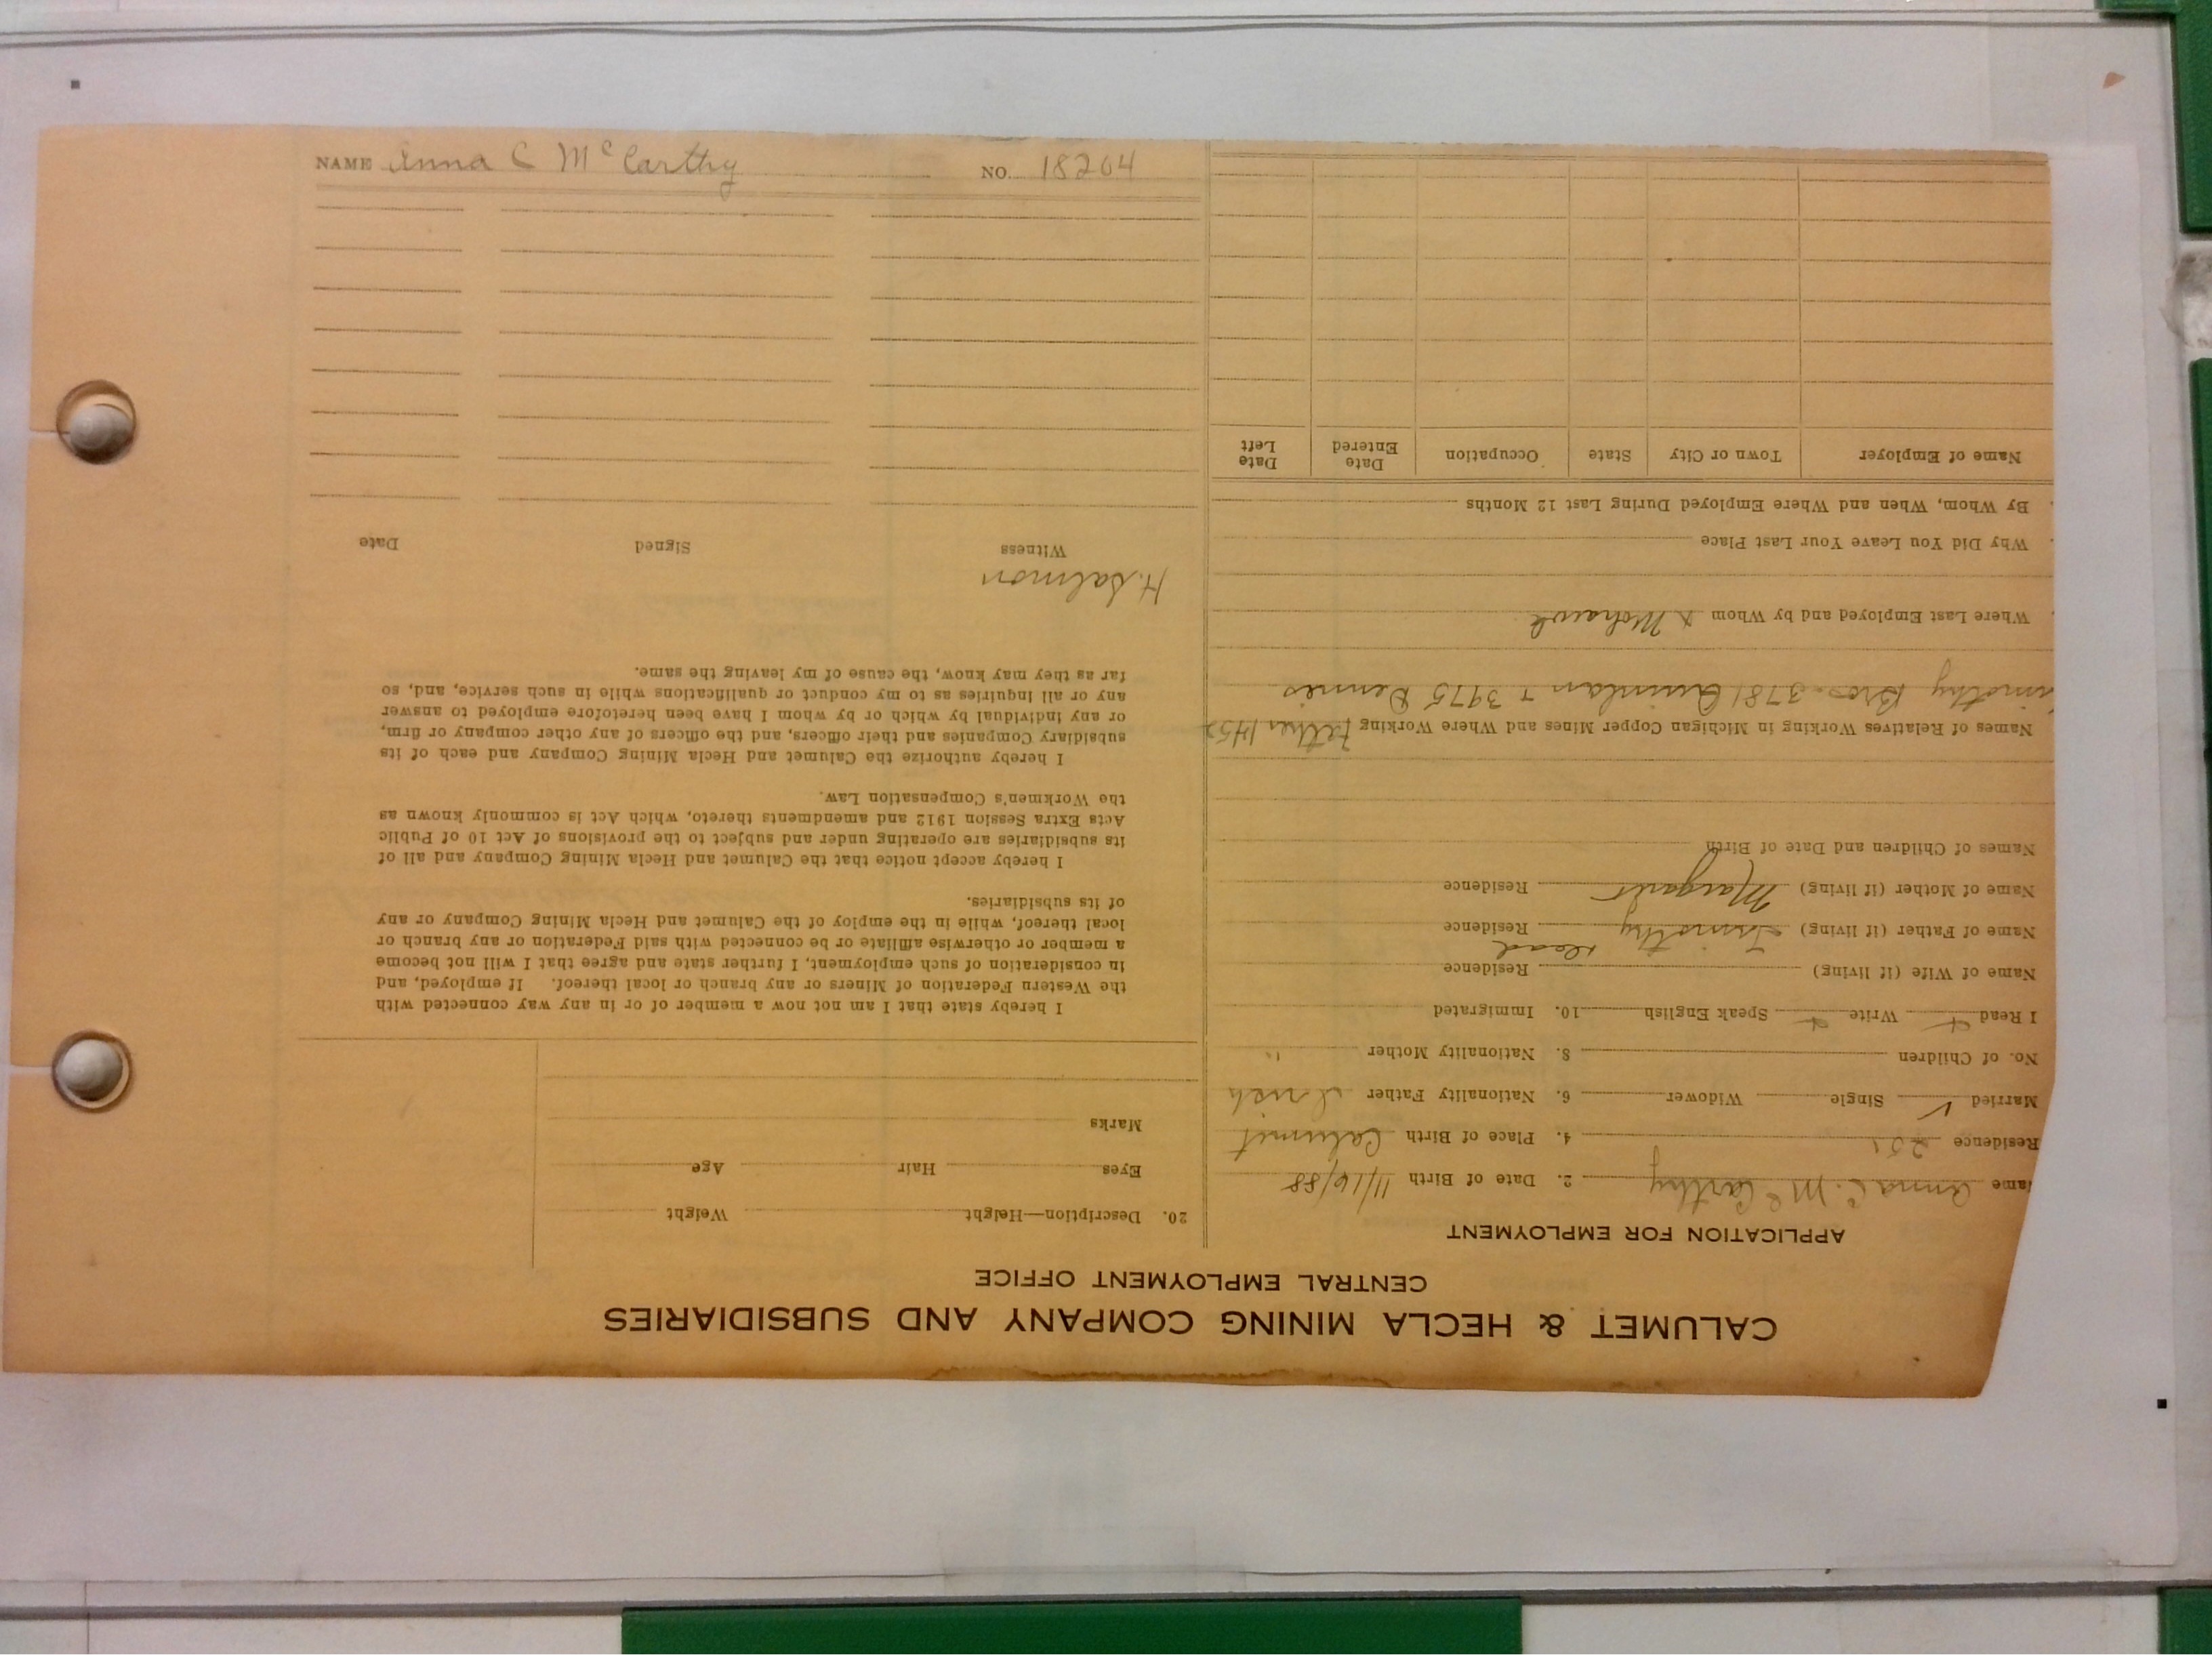 NAME Anna C McCarthy NO. 18204
CALUMET & HECLA MINING COMPANY AND SUBSIDIARIES
CENTRAL EMPLOYMENT OFFICE
APPLICATION FOR EMPLOYMENT
ame Anna C. McCarthy 2. Date of Birth 11/16/88
Residence 4. Place of Birth Calumet
Married Single Widower 6. Nationality Father Irish
No. of Children 8. Nationality Mother "
I Read Write Speak English 10. Immigrated
Name of Wife (if living) Residence
Name of Father (if living) Timothy dead Residence
Name of Mother (if living) Margaret Residence
Names of Children and Date of Birth
Names of Relatives Working in Michigan Copper Mines and Where Working Father
imothy Bro - 3781 Quinlan + 3975 Dennis
Where Last Employed and by Whom x Mohawk
Why Did You Leave Your Last Place
By Whom, When and Where Employed During Last 12 Months
Name of Employer Town or City State Occupation Date Entered Date Left
20. Description—Height Weight
Eyes Hair Age
Marks
I hereby state that I am not now a member of or in any way connected with
the Western Federation of Miners or any branch or local thereof. If employed, and
in consideration of such employment, I further state and agree that I will not become
a member or otherwise affiliate or be connected with said Federation or any branch or
local thereof, while in the employ of the Calumet and Hecla Mining Company or any
of its subsidiaries.
I hereby accept notice that the Calumet and Hecla Mining Company and all of
its subsidiaries are operating under and subject to the provisions of Act 10 of Public
Acts Extra Session 1912 and amendments thereto, which Act is commonly known as
the Workmen's Compensation Law.
I hereby authorize the Calumet and Hecla Mining Company and each of its
subsidiary Companies and their officers, and the officers of any other company or firm,
or any individual by which or by whom I have been heretofore employed to answer
any or all inquiries as to my conduct or qualifications while in such service, and, so
far as they may know, the cause of my leaving the same.
H. Salmon
Witness Signed Date